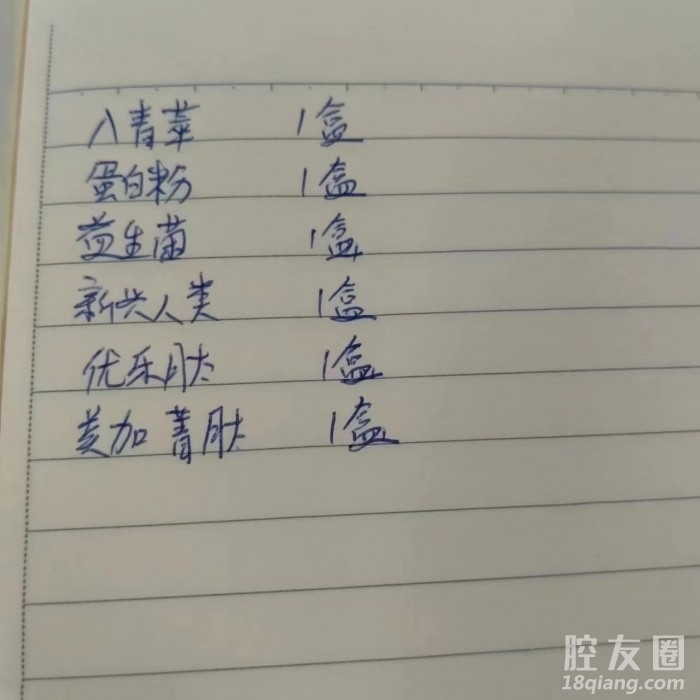 八青苹 1盒
蛋白粉 1盒
益生菌 1盒
新兴人类 1盒
优乐肽 1盒
美加菁肽 1盒
腔友圈
18qiang.com